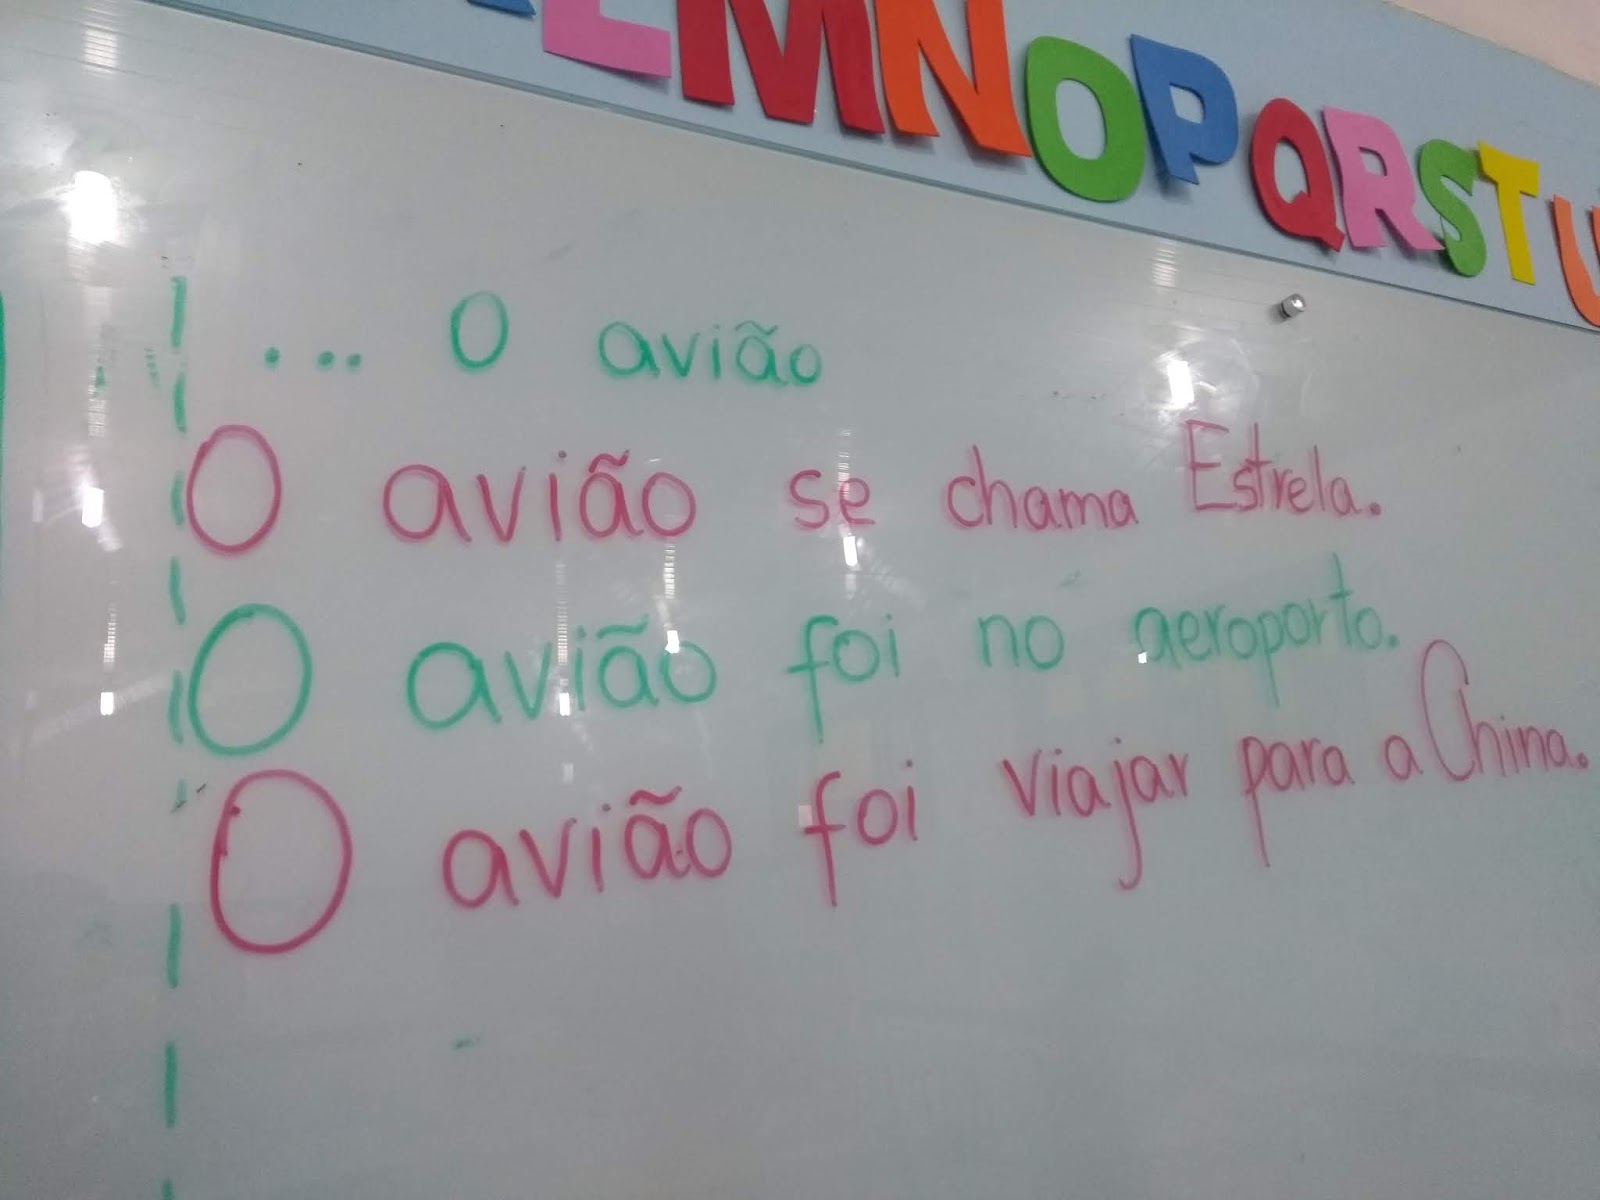 LMNOPQRSTU
... O avião
O avião se chama Estrela.
O avião foi no aeroporto.
O avião foi viajar para a China.